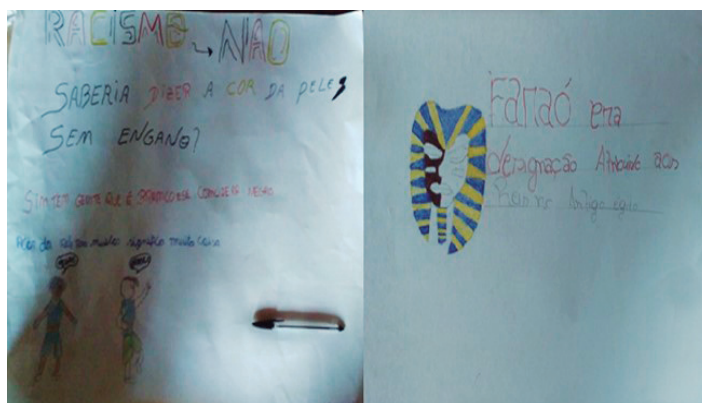 RACISMO → NÃO
SABERIA DIZER A COR DA PELE
SEM ENGANO?
SIM TEM GENTE QUE É BRANCO E SE CONSIDERA NEGRO
A cor da pele nos mostra significa muita coisa
Faraó era
designação Atribuída aos
Reis no Antigo Egito